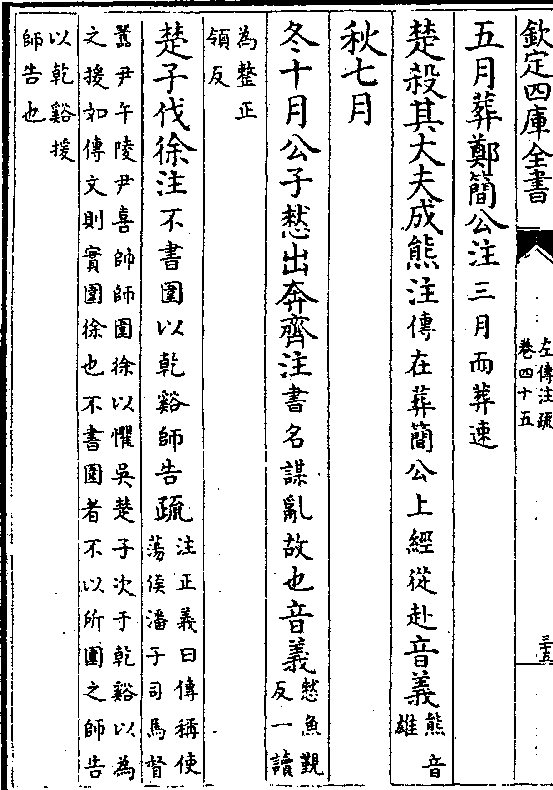 欽定四庫全書
左傳注疏
卷四十五
三五
五月葬鄭簡公注三月而葬速
楚殺其大夫成熊注傳在葬簡公上經從赴音義熊音
雄
秋七月
冬十月公子憖出奔齊注書名謀亂故也音義憖魚覲
反一讀
為整正
領反
楚子伐徐注不書圍以乾谿師告疏注正義曰傳稱使
蕩侯潘子司馬督
嚻尹午陵尹喜帥師圍徐以懼吳楚子次于乾谿以為
之援如傳文則實圍徐也不書圍者不以所圍之師告
以乾谿援
師告也